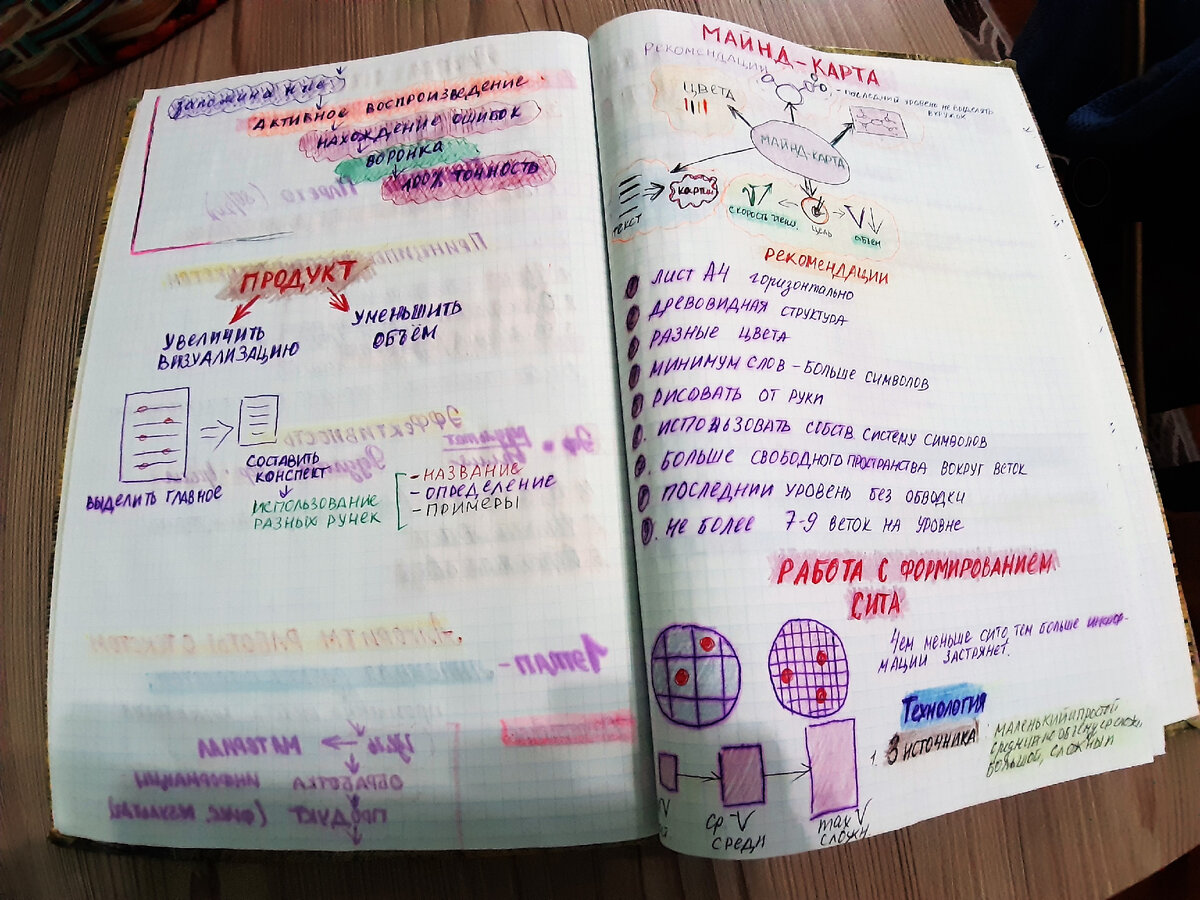 АКТИВНОЕ ВОСПРОИЗВЕДЕНИЕ
НАХОЖДЕНИЕ ОШИБОК
ВОРОНКА
100% ТОЧНОСТЬ
ПРОДУКТ
УВЕЛИЧИТЬ
ВИЗУАЛИЗАЦИЮ
УМЕНЬШИТЬ
ОБЪЁМ
ВЫДЕЛИТЬ ГЛАВНОЕ
СОСТАВИТЬ
КОНСПЕКТ
ИСПОЛЬЗОВАНИЕ
РАЗНЫХ РУЧЕК
- НАЗВАНИЕ
- ОПРЕДЕЛЕНИЕ
- ПРИМЕРЫ
МАЙНД-КАРТА
РЕКОМЕНДАЦИИ
ЦВЕТА
- ПОСЛЕДНИЙ УРОВЕНЬ НЕ ВЫДЕЛЯТЬ
В КРУЖОК
МАЙНД-КАРТА
ТЕКСТ
СКОРОСТЬ
ЦЕЛЬ
ОБЪЕМ
РЕКОМЕНДАЦИИ
ЛИСТ А4 ГОРИЗОНТАЛЬНО
ДРЕВОВИДНАЯ СТРУКТУРА
РАЗНЫЕ ЦВЕТА
МИНИМУМ СЛОВ - БОЛЬШЕ СИМВОЛОВ
РИСОВАТЬ ОТ РУКИ
ИСПОЛЬЗОВАТЬ СОБСТВ СИСТЕМУ СИМВОЛОВ
БОЛЬШЕ СВОБОДНОГО ПРОСТРАНСТВА ВОКРУГ ВЕТОК
ПОСЛЕДНИЙ УРОВЕНЬ БЕЗ ОБВОДКИ
НЕ БОЛЕЕ 7-9 ВЕТОК НА УРОВНЕ
РАБОТА С ФОРМИРОВАНИЕМ
СИТА
ЧЕМ МЕНЬШЕ СИТО, ТЕМ БОЛЬШЕ ИНФОР-
МАЦИИ ЗАСТРЯНЕТ.
ТЕХНОЛОГИЯ
1. 3 ИСТОЧНИКА
МАЛЕНЬКИЙ И ПРОСТОЙ
БОЛЬШОЙ, СЛОЖНЫЙ
V
СР-V
СРЕДН
max V
СЛОЖН.